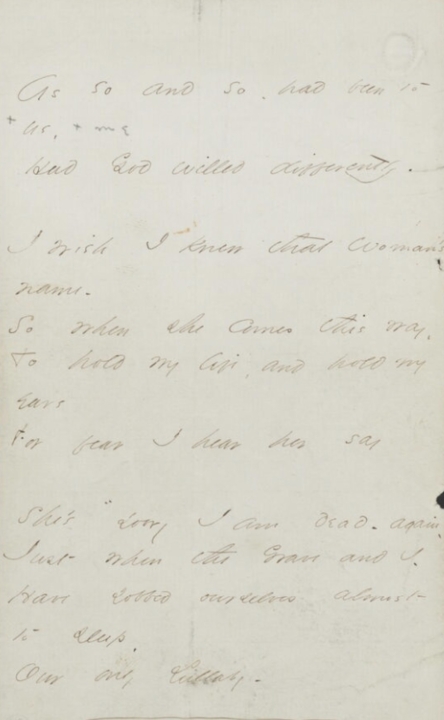 As so and so had been to
+ us, + me
Had God willed differently.
I wish I knew that Woman's
name -
So when she comes this way,
To hold my life, and hold my
ears
For fear I hear her say
She's "sorry I am dead" - again -
Just when the Grave and I -
Have sobbed ourselves almost
to sleep,
Our only Lullaby -